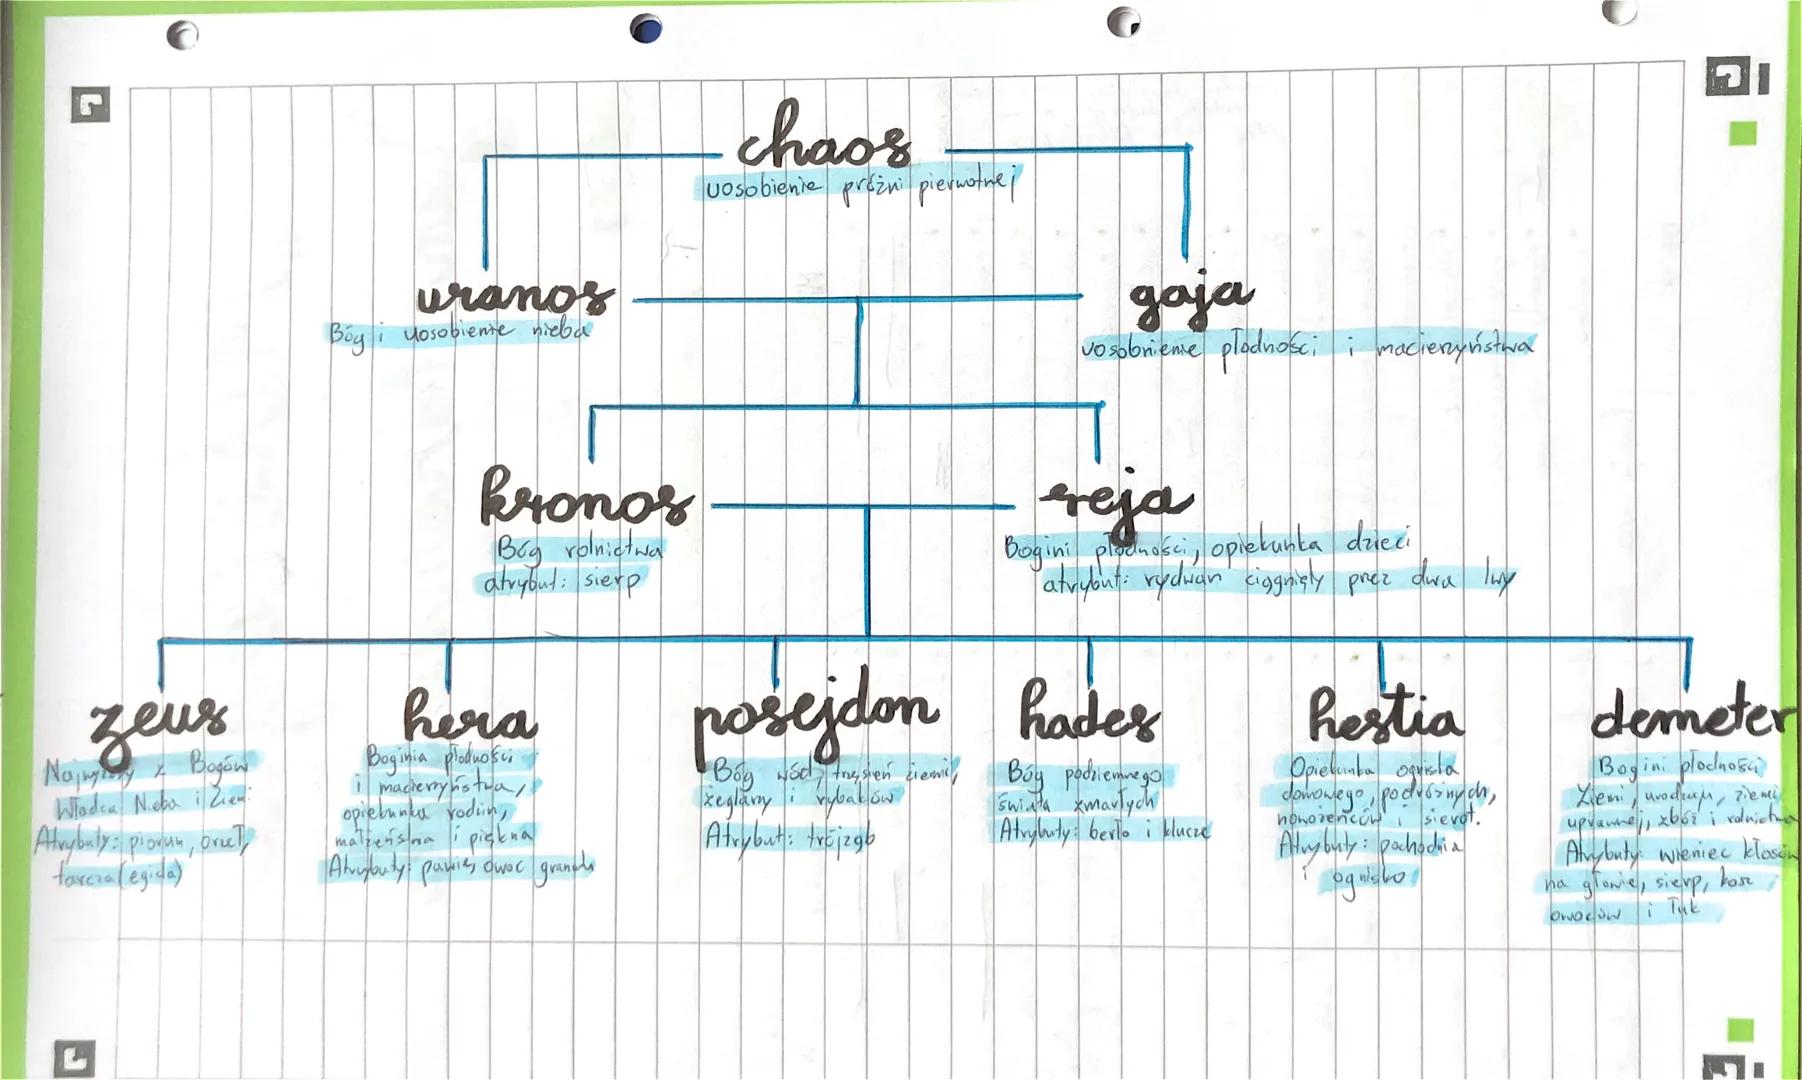 chaos
uosobienie próżni pierwotnej
uranos
Bóg i uosobienie nieba
gaja
uosobnienie płodności i macierzyństwa
kronos
Bóg rolnictwa
atrybut: sierp
reja
Bogini płodności, opiekunka dzieci
atrybut: rydwan ciągnięty przez dwa lwy
zeus
Najwyższy z Bogów
Władca Nieba i Ziemi
Atrybuty: piorun, orzeł,
tarcza (egida)
hera
Boginia płodności
i macierzyństwa,
opiekunka rodzin,
małżeństwa i piękna
Atrybuty: pawie, owoc granatu
posejdon
Bóg wód, trzęsień ziemi,
żeglarzy i rybaków
Atrybut: trójząb
hades
Bóg podziemnego
świata zmarłych
Atrybuty: berło i klucze
hestia
Opiekunka ogniska
domowego, podróżnych,
nowożeńców i sierot.
Atrybuty: pochodnia
i ognisko
demeter
Bogini płodności
Ziemi, urodzaju, ziemi
uprawnej, zbóż i rolnictwa
Atrybuty: wieniec kłosów
na głowie, sierp, kosz
owoców i łuk